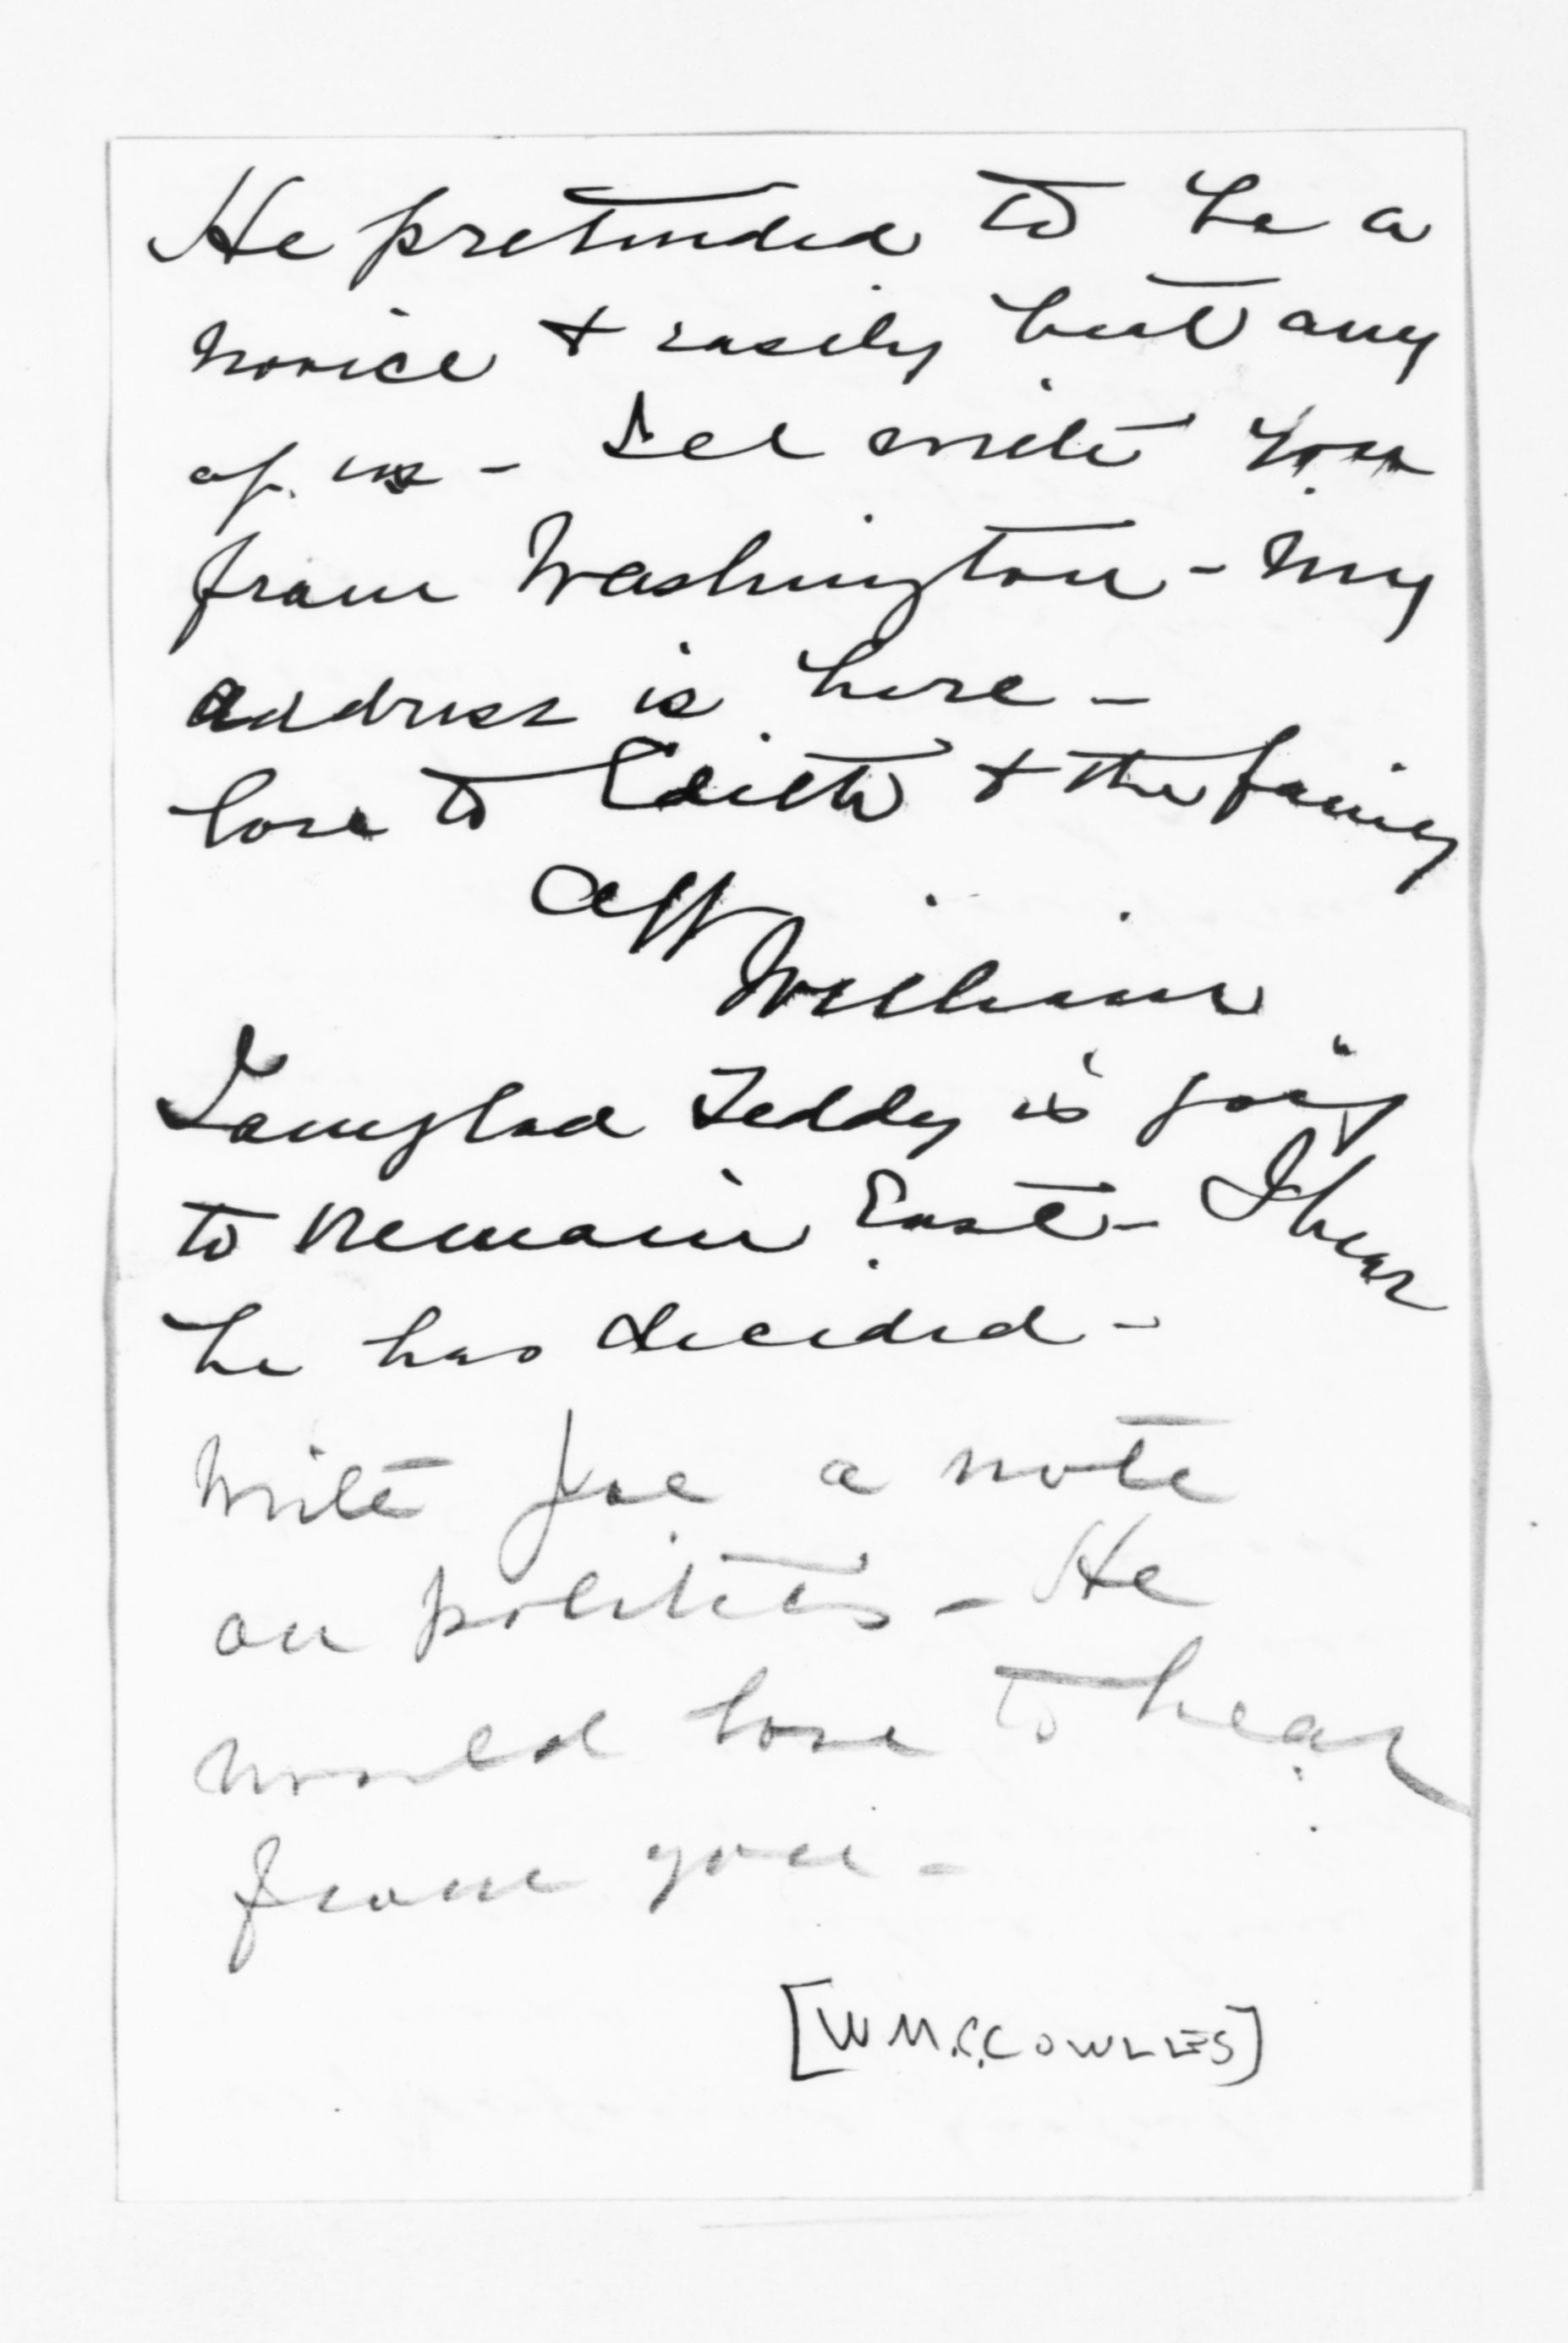 He pretended to be a
novice & easily beat any
of us - I'll write you
from Washington - My
address is here -
love to Edith & the family
Aff
William
I am glad Teddy is going
to remain East - I hear
he has decided -
Write Joe a note
on politics - He
would love to hear
from you -
[W M.S.COWLES]